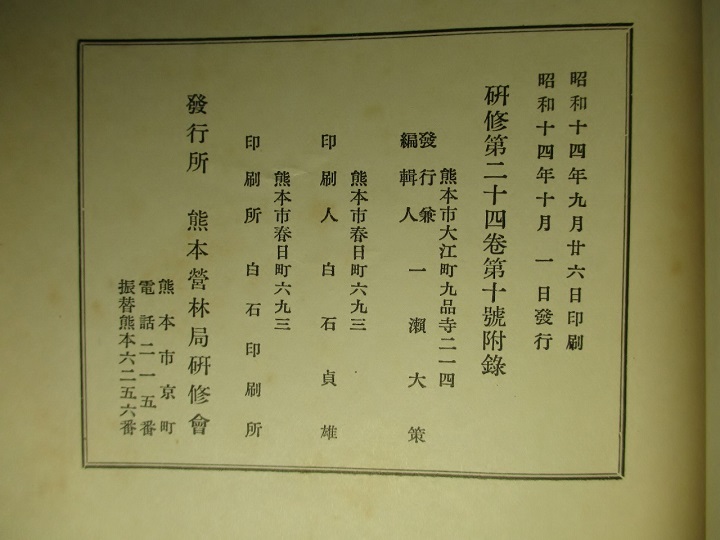 昭和十四年九月廿六日印刷
昭和十四年十月一日發行
硏修第二十四卷第十號附錄
熊本市大江町九品寺二一四
發行兼
編輯人 一瀨大策
熊本市春日町六九三
印刷人 白石貞雄
熊本市春日町六九三
印刷所 白石印刷所
發行所 熊本營林局硏修會
熊本市京町
電話二一五番
振替熊本六二五六番